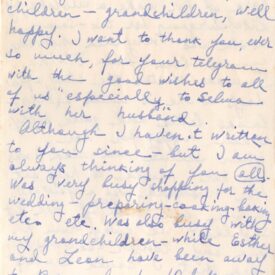 children - grandchildren, well
happy. I want to thank you ever
so much, for your telegram
with the "good wishes to all
of us" especially "to Selma
with her husband"
Although I haven't written
to you since - but I am
always thinking of you (all.
Was very busy shopping for the
wedding - preparing - cooking - baking
etc. etc. Was also busy with
my grandchildren - while Esther
and Leon have been away